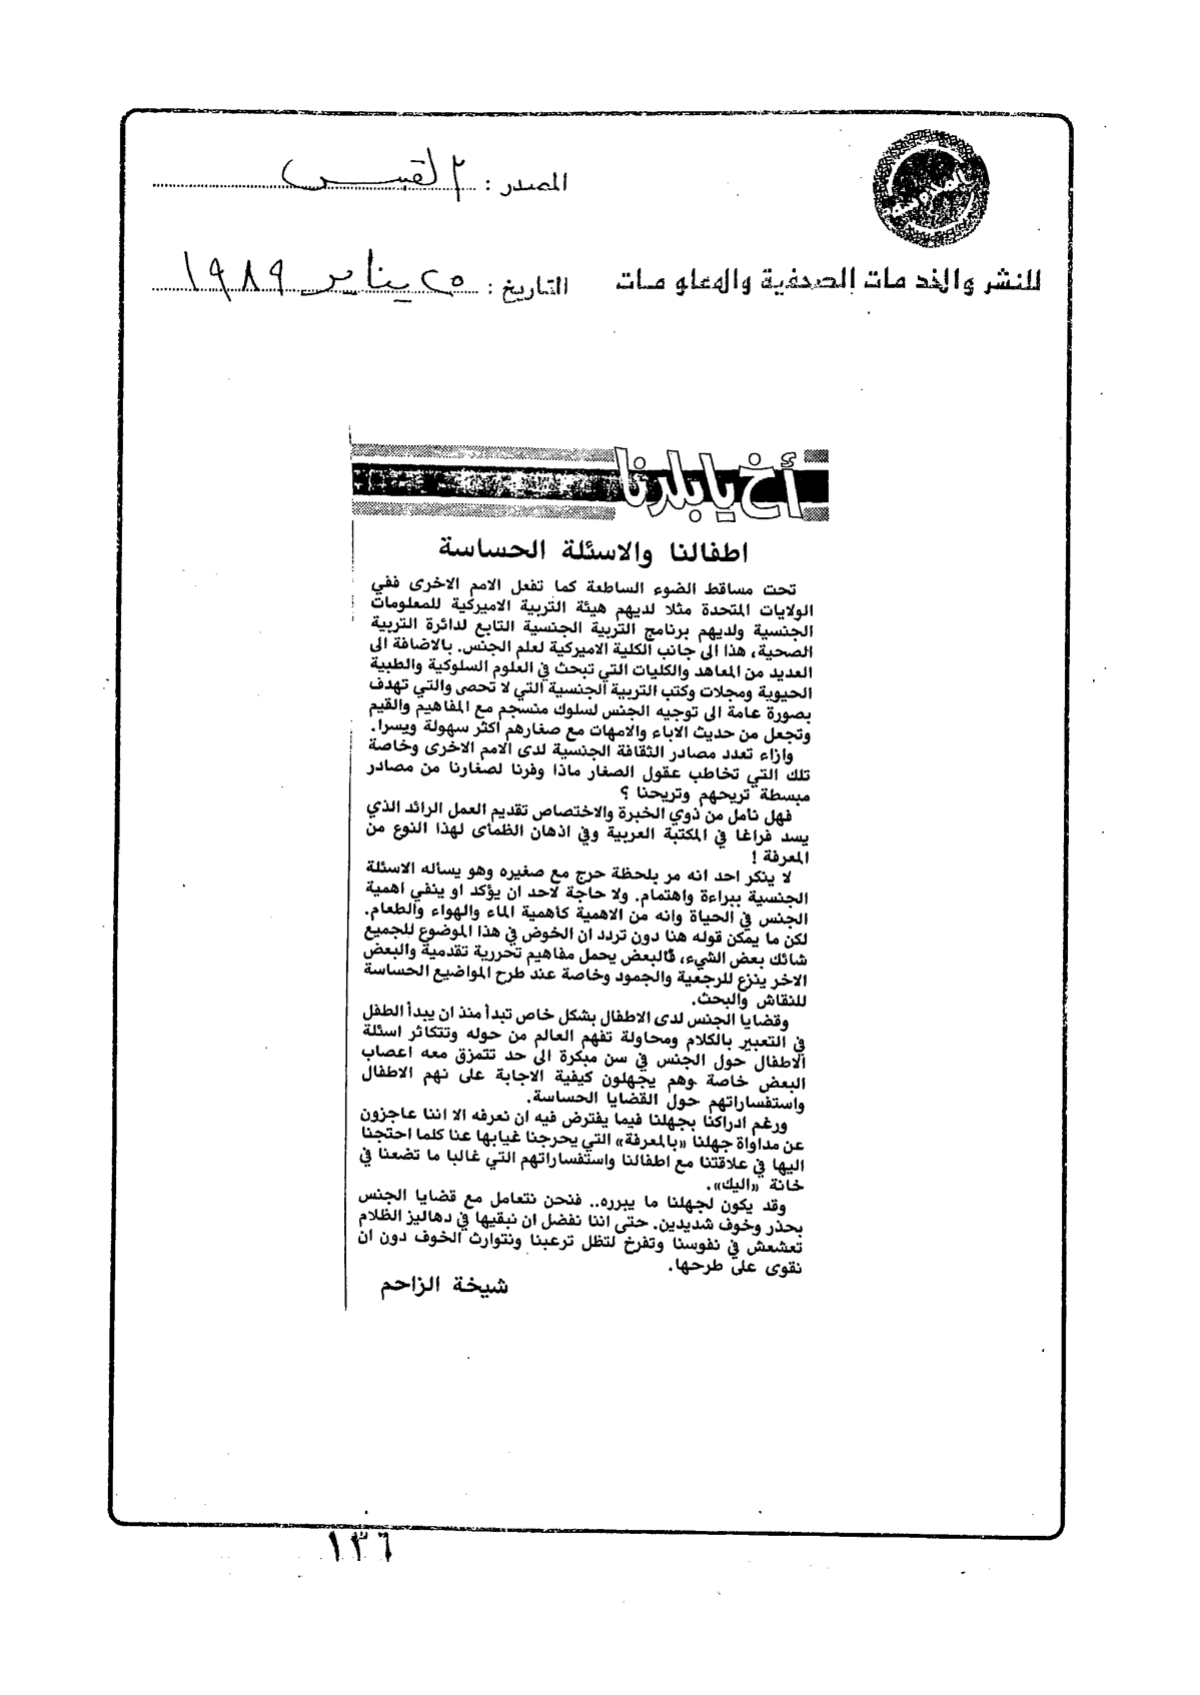 المصدر : القبس
التاريخ : ٢٥ يناير ١٩٨٩
للنشر والخدمات الصحفية والمعلومات
أخ يا بلدنا
اطفالنا والاسئلة الحساسة
تحت مساقط الضوء الساطعة كما تفعل الامم الاخرى ففي
الولايات المتحدة مثلا لديهم هيئة التربية الاميركية للمعلومات
الجنسية ولديهم برنامج التربية الجنسية التابع لدائرة التربية
الصحية، هذا الى جانب الكلية الاميركية لعلم الجنس. بالاضافة الى
العديد من المعاهد والكليات التي تبحث في العلوم السلوكية والطبية
الحيوية ومجلات وكتب التربية الجنسية التي لا تحصى والتي تهدف
بصورة عامة الى توجيه الجنس لسلوك منسجم مع المفاهيم والقيم
وتجعل من حديث الاباء والامهات مع صغارهم اكثر سهولة ويسرا.
وازاء تعدد مصادر الثقافة الجنسية لدى الامم الاخرى وخاصة
تلك التي تخاطب عقول الصغار ماذا وفرنا لصغارنا من مصادر
مبسطة تريحهم وتريحنا ؟
فهل نامل من ذوي الخبرة والاختصاص تقديم العمل الرائد الذي
يسد فراغا في المكتبة العربية وفي اذهان الظمأى لهذا النوع من
المعرفة !
لا ينكر احد انه مر بلحظة حرج مع صغيره وهو يسأله الاسئلة
الجنسية ببراءة واهتمام. ولا حاجة لاحد ان يؤكد او ينفي اهمية
الجنس في الحياة وانه من الاهمية كأهمية الماء والهواء والطعام.
لكن ما يمكن قوله هنا دون تردد ان الخوض في هذا الموضوع للجميع
شائك بعض الشيء، فالبعض يحمل مفاهيم تحررية تقدمية والبعض
الاخر ينزع للرجعية والجمود وخاصة عند طرح المواضيع الحساسة
للنقاش والبحث.
وقضايا الجنس لدى الاطفال بشكل خاص تبدأ منذ ان يبدأ الطفل
في التعبير بالكلام ومحاولة تفهم العالم من حوله وتتكاثر اسئلة
الاطفال حول الجنس في سن مبكرة الى حد تتمزق معه اعصاب
البعض خاصة وهم يجهلون كيفية الاجابة على نهم الاطفال
واستفساراتهم حول القضايا الحساسة.
ورغم ادراكنا بجهلنا فيما يفترض فيه ان نعرفه الا اننا عاجزون
عن مداواة جهلنا «بالمعرفة» التي يحرجنا غيابها عنا كلما احتجنا
اليها في علاقتنا مع اطفالنا واستفساراتهم التي غالبا ما تضعنا في
خانة «اليك».
وقد يكون لجهلنا ما يبرره.. فنحن نتعامل مع قضايا الجنس
بحذر وخوف شديدين. حتى اننا نفضل ان نبقيها في دهاليز الظلام
تعشعش في نفوسنا وتفرخ لتظل ترعبنا ونتوارث الخوف دون ان
نقوى على طرحها.
شيخة الزاحم
١٣٦